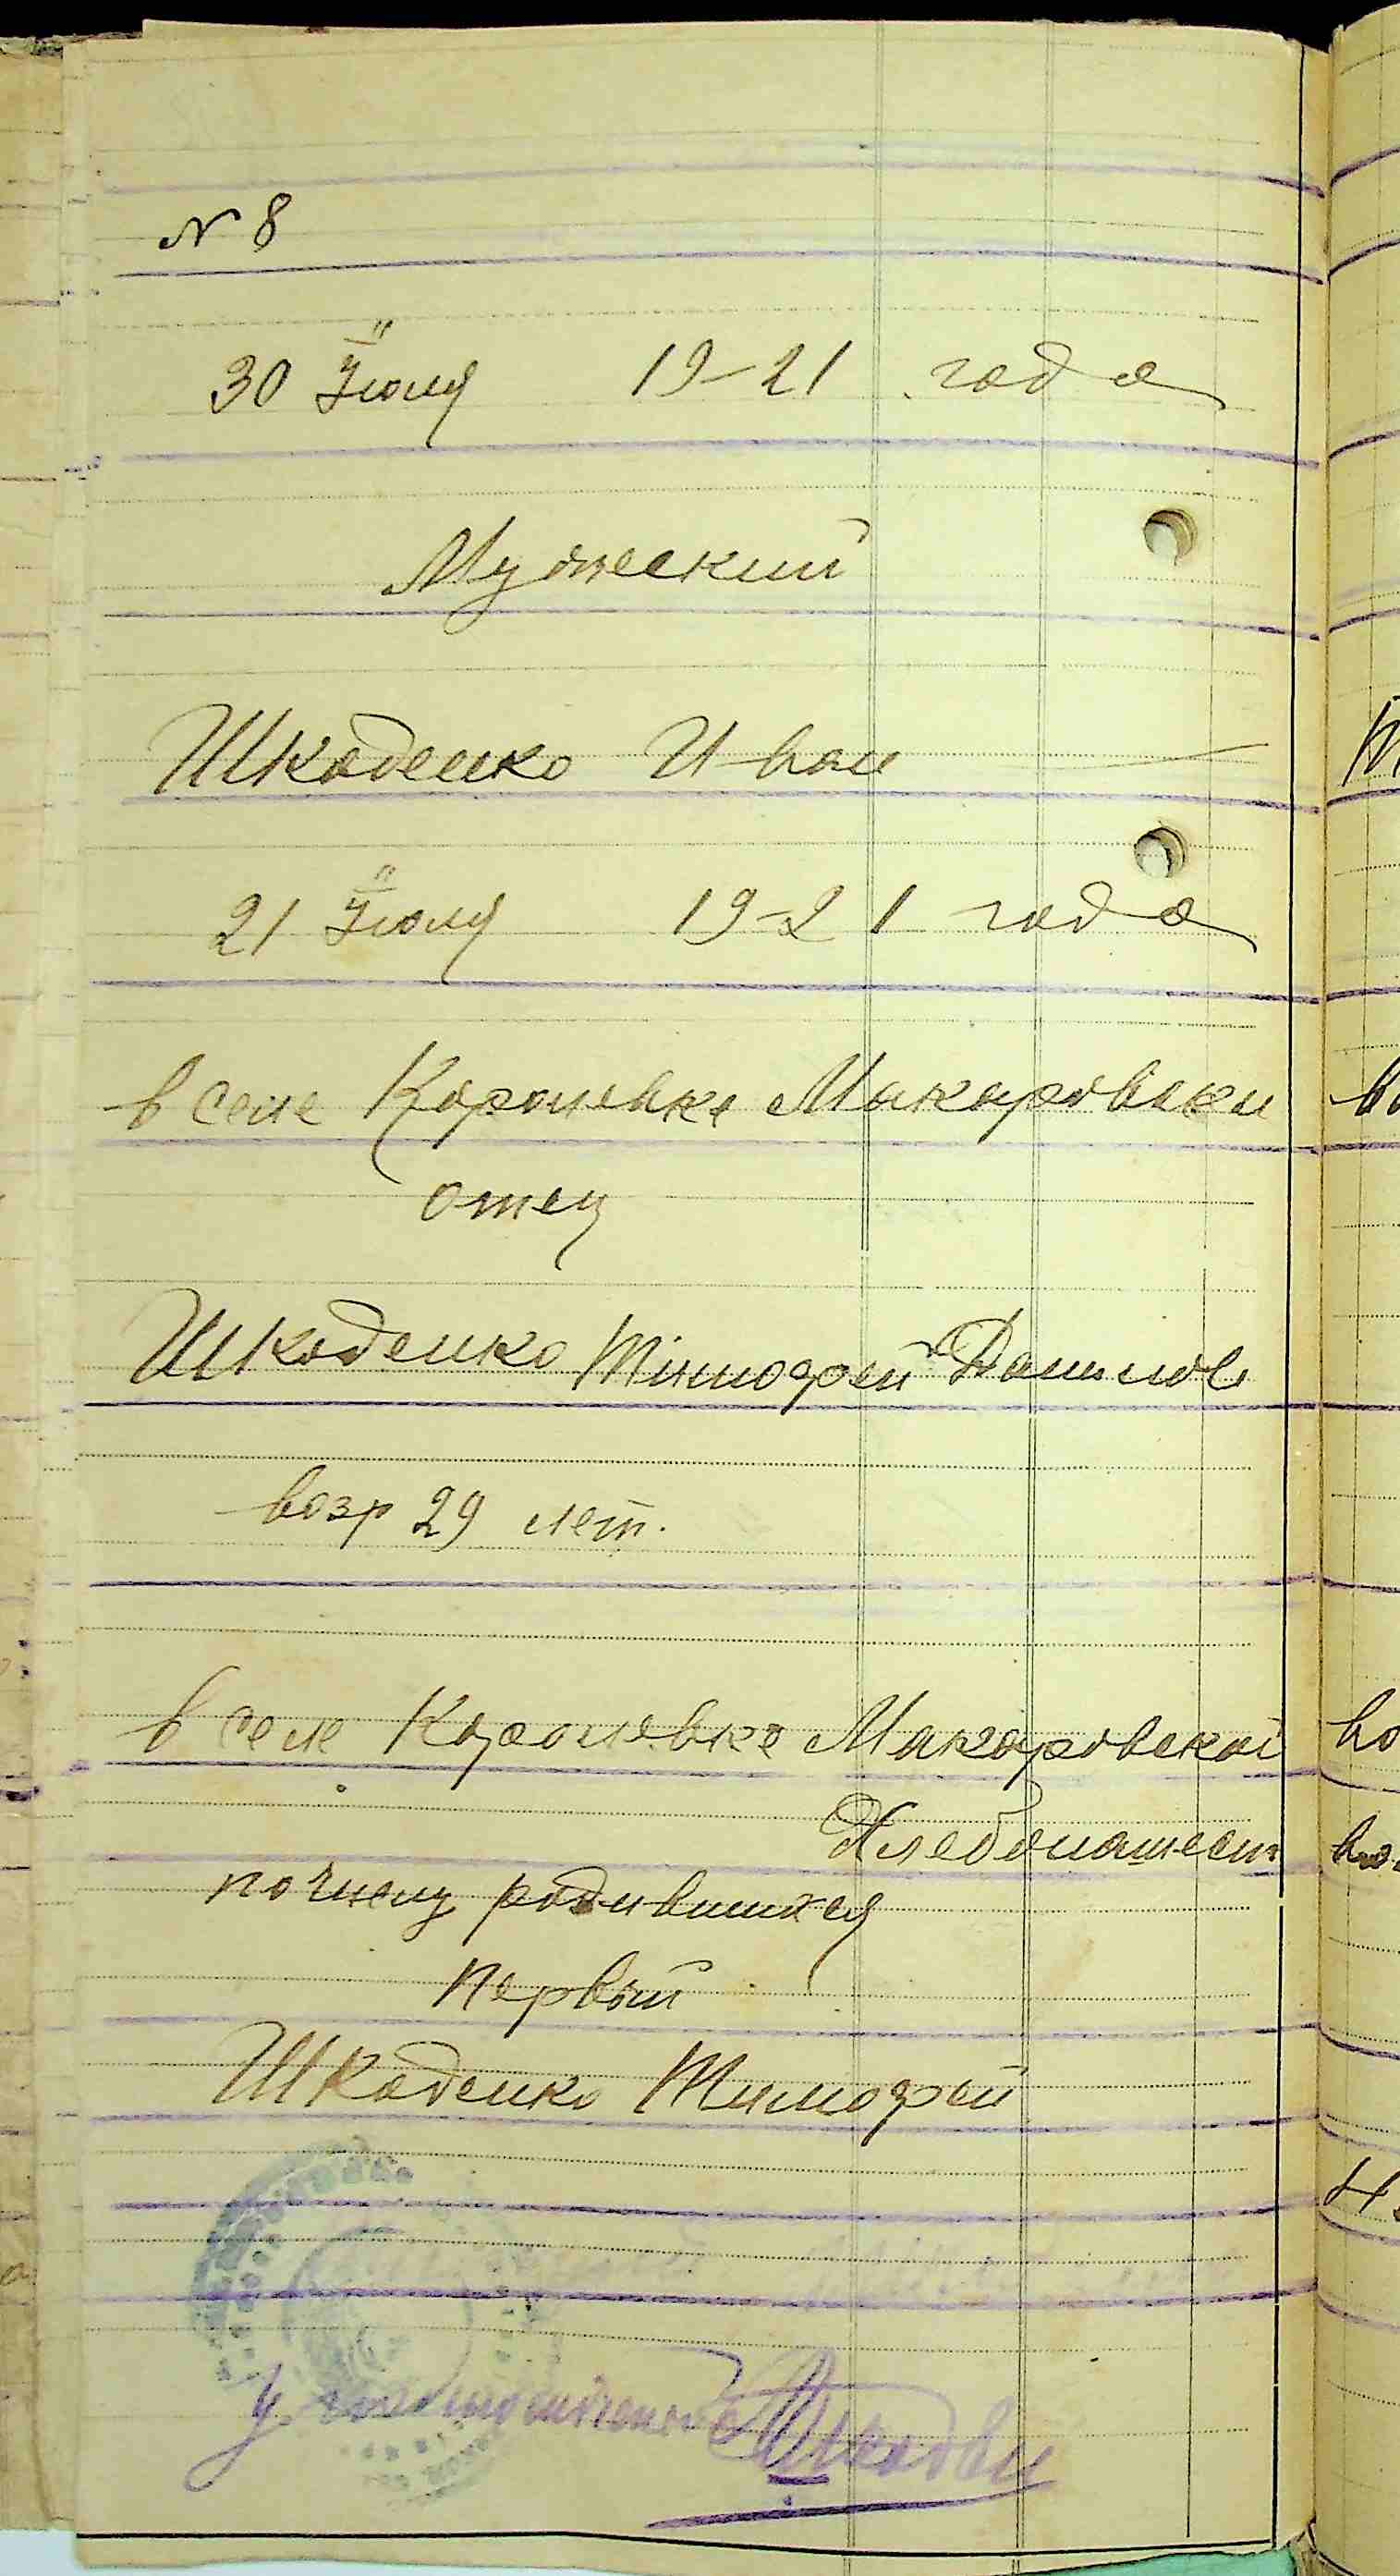 № 8
30 Июля 19-21 года
Мужеский
Шкоденко Иван
21 Июля 19-21 года
в селе Королевке Макаровски
отец
Шкоденко Тімофей Данилов
возр 29 лет.
в селе Королевке Макаровской
Хлебопашест
по числу родившихся
первый
Шкоденко Тимофей